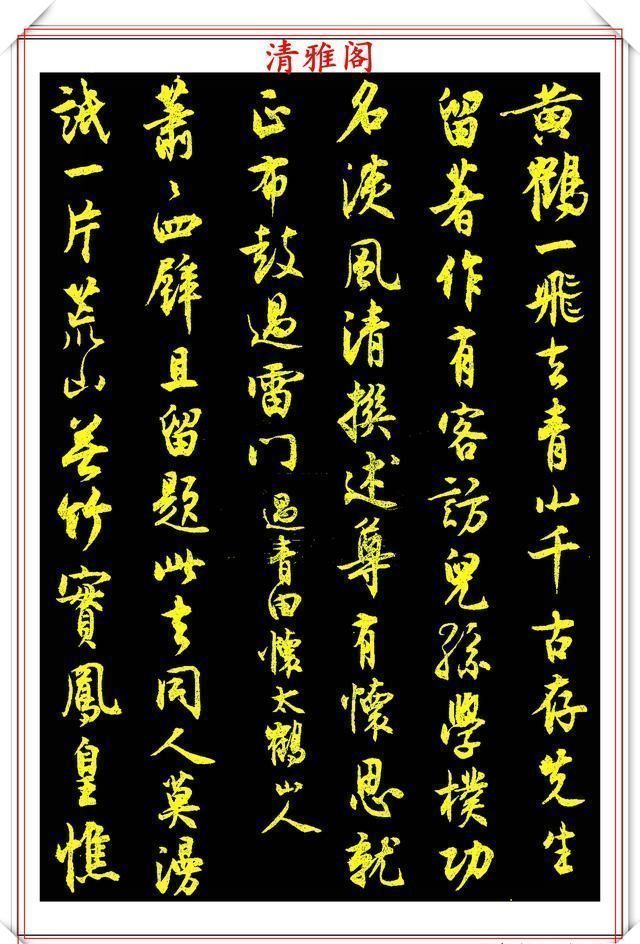 清雅阁
黄鶴一飛去青山千古存先生
留著作有客訪兒孫學樸功
名淡風清撰述尊有懷思就
正布鼓過雷门過青田懷太鶴山人
蕭〻四壁且留題此去同人莫漫
一片荒山無竹實鳳皇憔